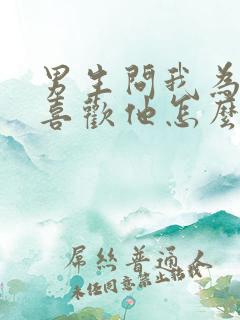 男生問我為
喜歡他怎麼
屌絲普通人
未經同意禁止轉載